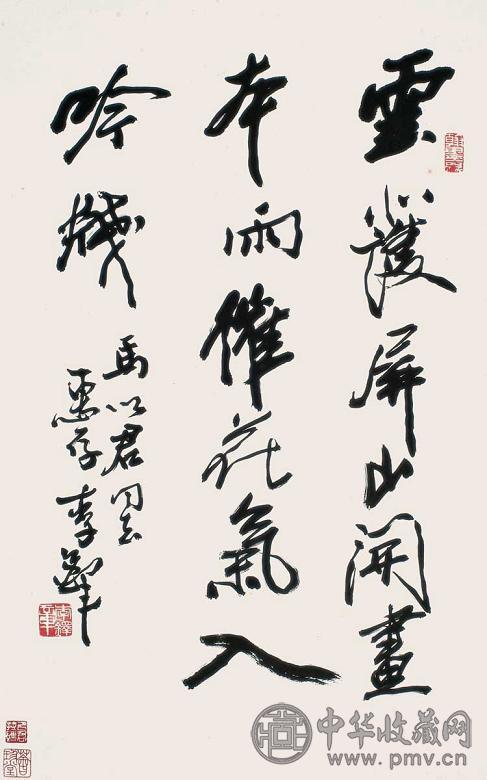 雲護屏山開畫
本雨催花氣入
吟
馬以君同志
惠存 李鐸
中华收藏网
www.pmv.cn